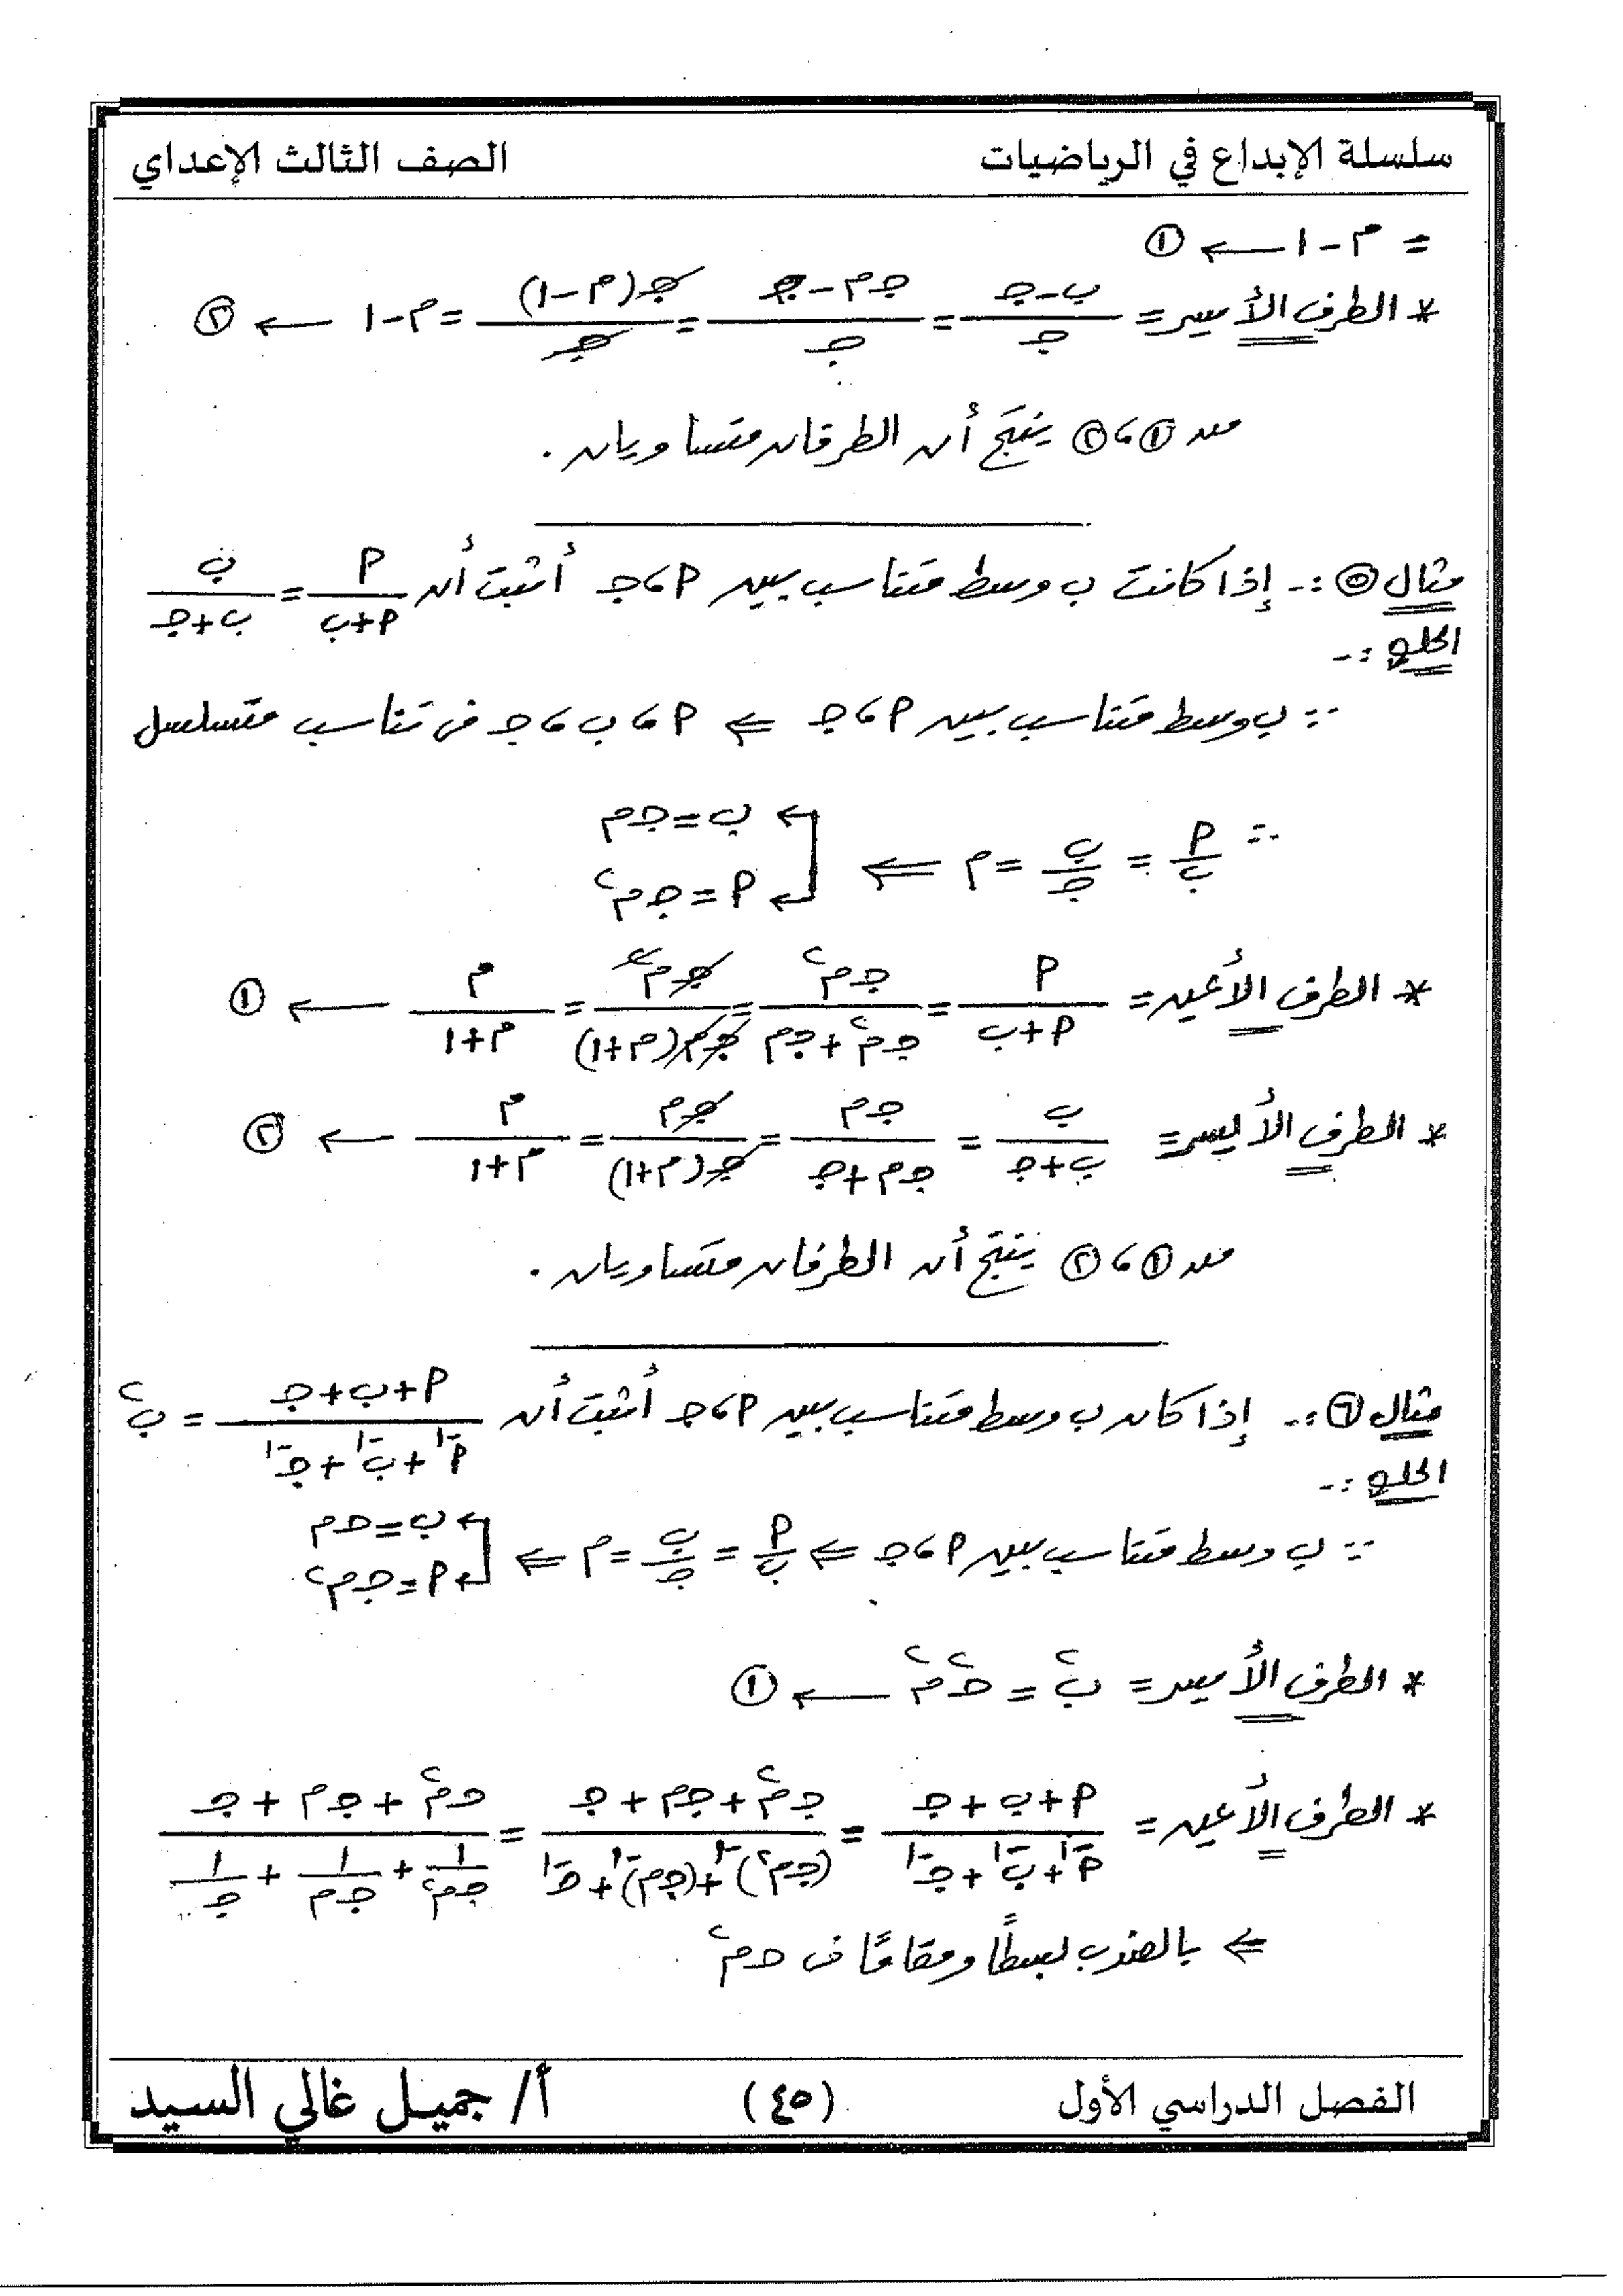 سلسلة الإبداع في الرياضيات الصف الثالث الإعداي
= م - ١ ← ①
* الطرف الأيسر = (ب - جـ)/جـ = (جـ م - جـ)/جـ = جـ(م - ١)/جـ = م - ١ ← ②
من ① ، ② ينتج أن الطرفان متساويان .
مثال ⑤ :- إذا كانت ب وسط متناسب بين أ ، جـ أثبت أن أ/(أ + ب) = ب/(ب + جـ)
الحل :-
∵ ب وسط متناسب بين أ ، جـ ⇐ أ ، ب ، جـ فى تناسب متسلسل
∴ أ/ب = ب/جـ = م ⇐ ب = جـ م
أ = جـ م²
* الطرف الأيمن = أ/(أ + ب) = جـ م²/(جـ م² + جـ م) = جـ م²/(جـ م(م + ١)) = م/(م + ١) ← ①
* الطرف الأيسر = ب/(ب + جـ) = جـ م/(جـ م + جـ) = جـ م/(جـ(م + ١)) = م/(م + ١) ← ②
من ① ، ② ينتج أن الطرفان متساويان .
مثال ⑥ :- إذا كان ب وسط متناسب بين أ ، جـ أثبت أن (أ + ب + جـ)/(أ⁻¹ + ب⁻¹ + جـ⁻¹) = ب²
الحل :-
∵ ب وسط متناسب بين أ ، جـ ⇐ أ/ب = ب/جـ = م ⇐ ب = جـ م
أ = جـ م²
* الطرف الأيسر = ب² = جـ² م² ← ①
* الطرف الأيمن = (أ + ب + جـ)/(أ⁻¹ + ب⁻¹ + جـ⁻¹) = (جـ م² + جـ م + جـ)/((جـ م²)⁻¹ + (جـ م)⁻¹ + جـ⁻¹) = (جـ م² + جـ م + جـ)/(١/جـ م² + ١/جـ م + ١/جـ)
⇐ بالضرب بسطًا ومقامًا فى جـ م²
الفصل الدراسي الأول (٤٥) أ/ جميل غالي السيد